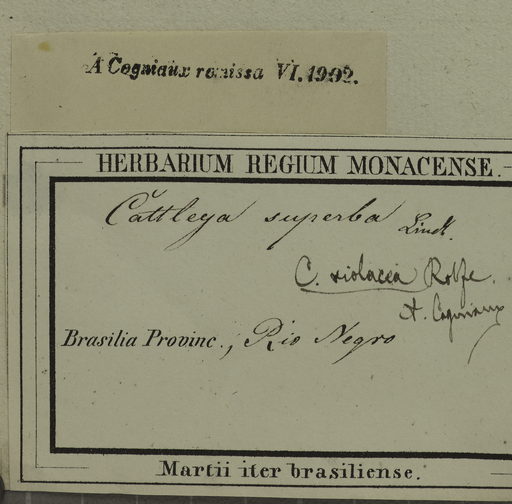 A Cogniaux remissa VI. 1902.
HERBARIUM REGIUM MONACENSE.
Cattleya superba Lindl.
C. violacea Rolfe.
A. Cogniaux
Brasilia Provinc., Rio Negro
Martii iter brasiliense.